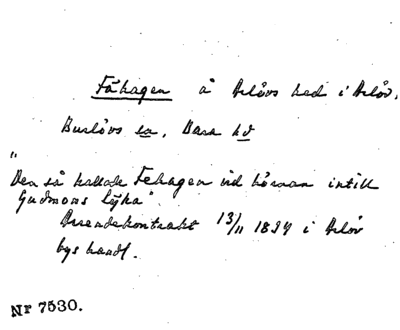 Fåhagen å Arlövs hed i Arlöv,
Burlövs sn, Bara hd
"
Den så kallade Fehagen vid hörnan intill
Gudmons lyka".
Arrendekontrakt 13/11 1894 i Arlöv
bys handl.
Nr 7530.